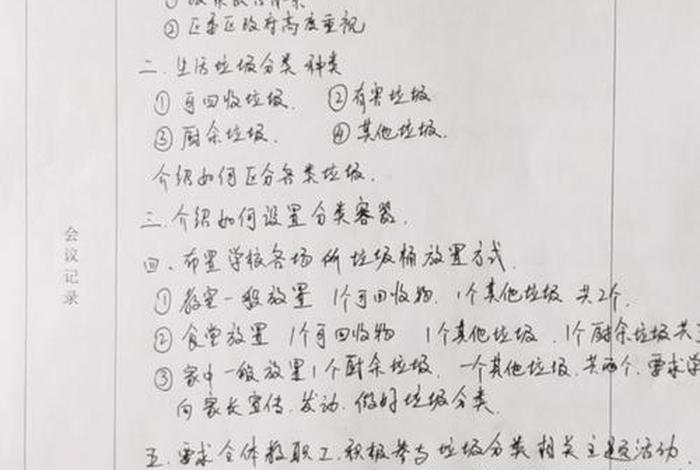 ②区委区政府高度重视
二.生活垃圾分类 种类
①可回收垃圾. ②有害垃圾
③厨余垃圾. ④其他垃圾.
介绍如何区分各类垃圾.
三.介绍如何设置分类容器.
会议记录
四、布置学校各场所垃圾桶放置方式.
①教室一般放置 1个可回收物. 1个其他垃圾 共2个.
②食堂放置 1个可回收物 1个其他垃圾. 1个厨余垃圾共
③家中一般放置1个厨余垃圾. 一个其他垃圾.共两个.要求学
向家长宣传.发动.做好垃圾分类.
五.要求全体教职工.积极参与垃圾分类相关主题活动.